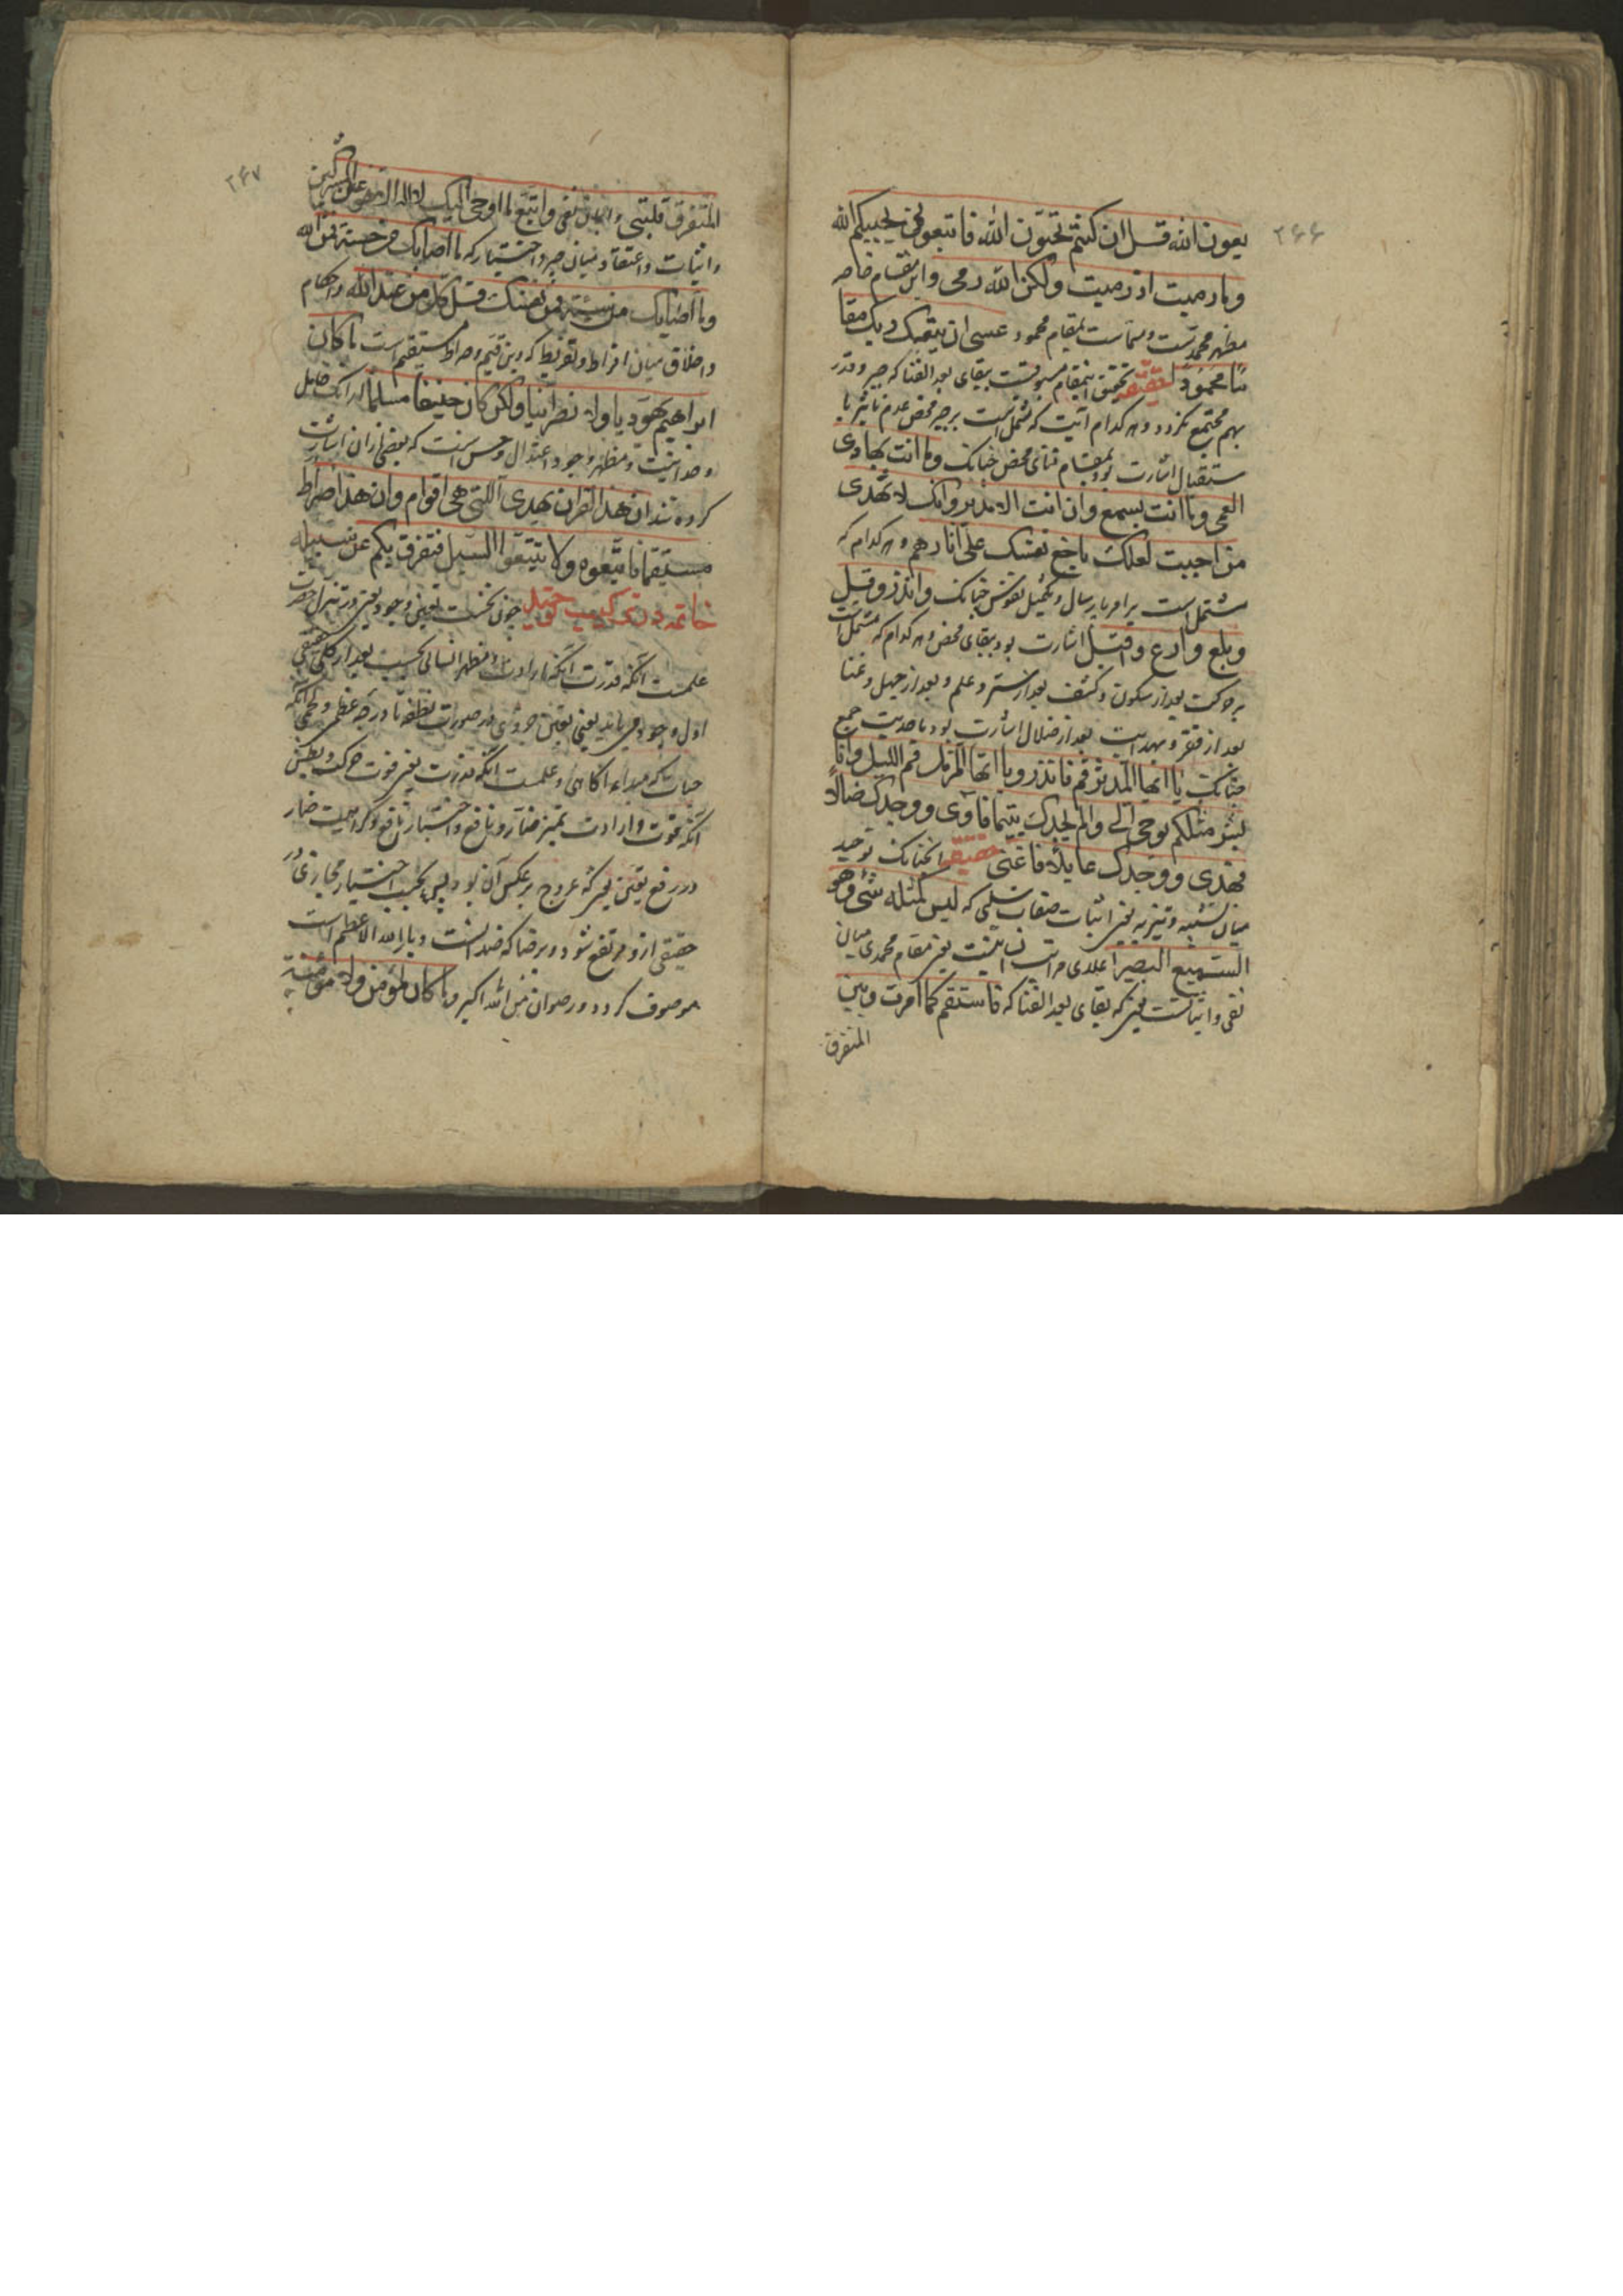 ۲۶۶
یعون الله قل ان کنتم تحبون الله فاتبعونی یحببکم الله
و ما رمیت اذ رمیت ولکن الله رمی و این مقام خاصه
مظهر محمدیست و مسماست بمقام محمود عسی ان یبعثک ربک مقا
ما محمودا تحقیق اینمقام مسبوقست ببقای بعد الفنا که جبر و قدر
بهم مجتمع نکردد و هر کدام آیت که مشتمل است بر جبر محض عدم تاثیر با
ستقبال اشارت بود بمقام فنای محض چنانک و ما انت بهادی
العمی و ما انت بمسمع و ان انت الا نذیر و انک لا تهدی
من احببت لعلک باخع نفسک علی آثارهم و هر کدام که
مشتمل است بر امر بارسال و تکمیل نفوس چنانک و انذر و قیل
و بلغ و ادع و اقبل اشارت بود ببقای محض و هر کدام که مشتمل است
بر حرکت بعد از سکون و کشف بعد از ستر و علم بعد از جهل و غنا
بعد از فقر و هدایت بعد از ضلال اشارت بود باحدیت جمع
چنانک یا ایها المدثر قم فانذر و یا ایها المزمل قم اللیل و انا
بشر مثلکم یوحی الی و الم یجدک یتیما فآوی و وجدک ضالا
فهدی و وجدک عایلا فاغنی حقیقه چنانک توحید
میان تشبیه و تنزیه یعنی اثبات صفات سلبی که لیس کمثله شی و هو
السمیع البصیر اعلای مراتب یعنی مقام محمدی میان
نفی و اثباتست یعنی که بقای بعد الفنا که فاستقم کما امرت و بین
المتفرق
۲۴۷
المتفرق قلبتنی و ایمان نفی و اتبع ما اوحی الیک لا اله الا هو و اعرض عن المشرکین
و اثبات و اعتقاد میان جبر و اختیار که ما اصابک من حسنة فمن الله
و ما اصابک من سیئة فمن نفسک قل کل من عند الله و احکام
و اخلاق میان افراط و تفریط که دین قیم و صراط مستقیم است ما کان
ابراهیم یهودیا ولا نصرانیا ولکن کان حنیفا مسلما
وحدانیت و مظهر وجود اعتدال و حس است که بعضی از ان اشارت
کرده شد ان هذا القرآن یهدی اللتی هی اقوم و ان هذا صراط
مستقیما فاتبعوه ولا تتبعوا السبل فتفرق بکم عن سبیله
خاتمه در ترکیب چون نخست تعین وجود یعنی در تنزل حضرت
علمست آنکه قدرت آنکه ارادت و مظهر انسانی بحسب بعد از کلی حقیقی
اول وجود می یابد یعنی تعین جزوی در صورت نطفه تا درجه عظم و لحم آنکه
حیات که مبداء آکاهی و علمست آنکه قدرت یعنی قوت حرکت و بطش
آنکه قوت و ارادت تمییز ضار و نافع و اختیار نافع و کراهیت ضار
و در رفع تعین یعنی که عروج بر عکس آن بود پس بحسب اختیار مجازی و
حقیقی از و مرتفع شود و برضا که ضد است و باب الله الاعظم است
موصوف کردد و رضوان من الله اکبر ما کان لمؤمن ولا مؤمنة